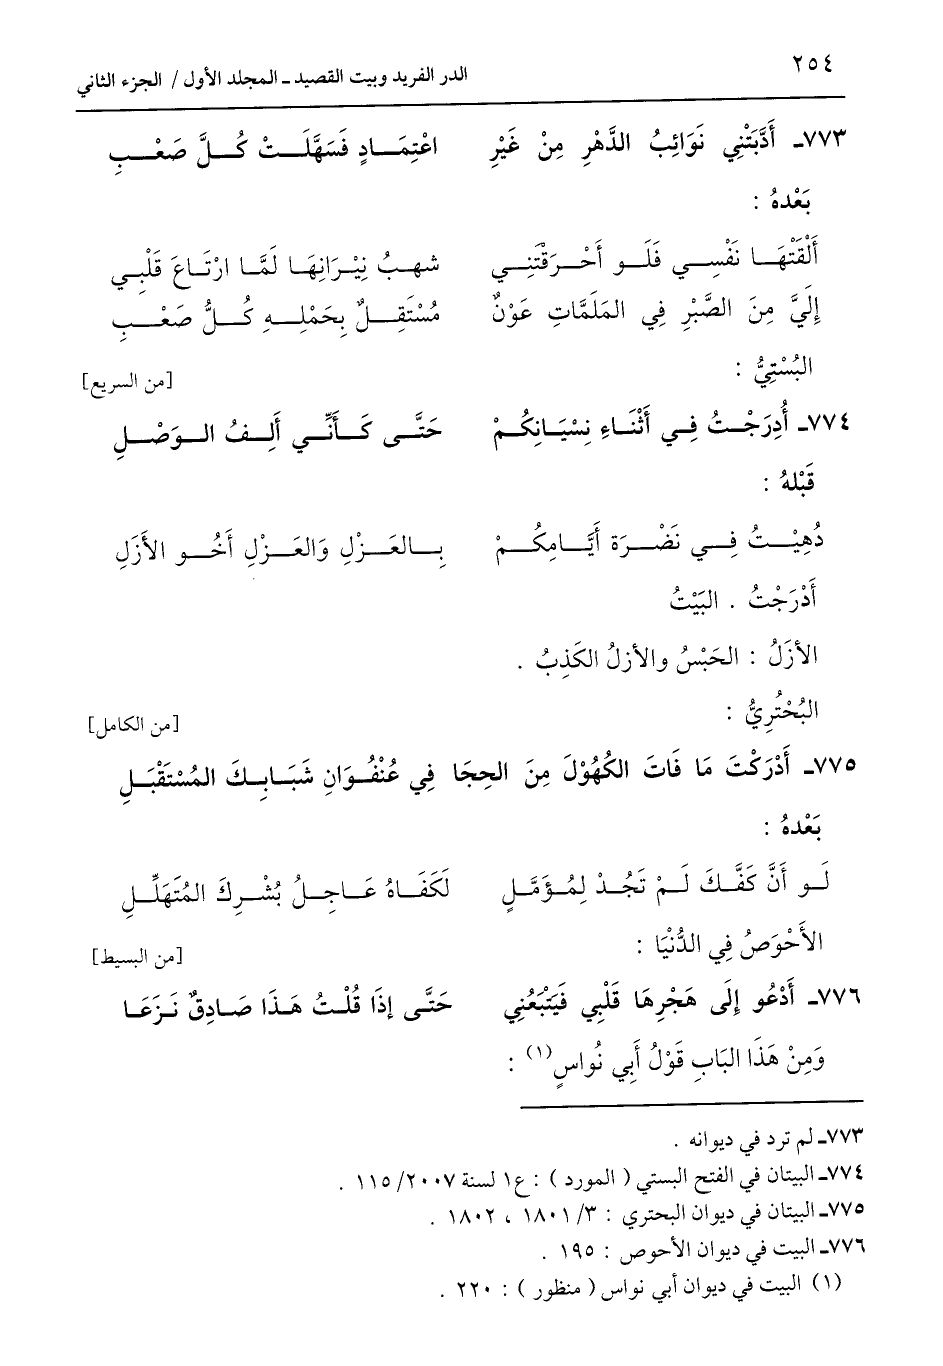 ٢٥٤
الدر الفريد وبيت القصيد ـ المجلد الأول / الجزء الثاني
٧٧٣ـ أَدَّبَتْنِي نَوَائِبُ الدَّهْرِ مِنْ غَيْرِ اعْتِمَادٍ فَسَهَّلَتْ كُلَّ صَعْبِ
بَعْدهُ :
أَلْقَتْهَا نَفْسِي فَلَو أَحْرَقَتْنِي شهبُ نِيْرَانِهَا لَمَّا ارْتَاعَ قَلْبِي
إِلَيَّ مِنَ الصَّبْرِ فِي المَلَمَّاتِ عَوْنٌ مُسْتَقِلٌ بِحَمْلِهِ كُلُّ صَعْبِ
البُسْتِيُّ : [من السريع]
٧٧٤ـ أُدِرَجْتُ فِي أَثْنَاءِ نِسْيَانِكُمْ حَتَّى كَأَنِّي أَلِفُ الوَصْلِ
قَبْلهُ :
دُهِيْتُ فِي نَضْرَة أَيَّامِكُمْ بِالعَزْلِ وَالعَزْلِ أَخُو الأَزَلِ
أَدْرَجْتُ . البَيْتُ
الأَزَلُ : الحَبْسُ والأزلُ الكَذِبُ .
البُحْتُرِيُّ : [من الكامل]
٧٧٥ـ أَدْرَكْتَ مَا فَاتَ الكُهُوْلَ مِنَ الحِجَا فِي عُنْفُوَانِ شَبَابِكَ المُسْتَقْبَلِ
بَعْدهُ :
لَو أَنَّ كَفَّكَ لَمْ تَجُدْ لِمُؤَمَّلٍ لَكَفَاهُ عَاجِلُ بُشْرِكَ المُتَهَلِّلِ
الأَحْوَصُ فِي الدُّنْيَا : [من البسيط]
٧٧٦ـ أَدْعُو إِلَى هَجْرِهَا قَلْبِي فَيَتْبَعُنِي حَتَّى إِذَا قُلْتُ هَذَا صَادِقٌ نَزَعَا
وَمِنْ هَذَا البَابِ قَوْلُ أَبِي نُواسٍ(١) :
٧٧٣ـ لم ترد في ديوانه .
٧٧٤ـ البيتان في الفتح البستي ( المورد ) : ع١ لسنة ٢٠٠٧/ ١١٥ .
٧٧٥ـ البيتان في ديوان البحتري : ٣/ ١٨٠١ ، ١٨٠٢ .
٧٧٦ـ البيت في ديوان الأحوص : ١٩٥ .
(١) البيت في ديوان أبي نواس ( منظور ) : ٢٢٠ .